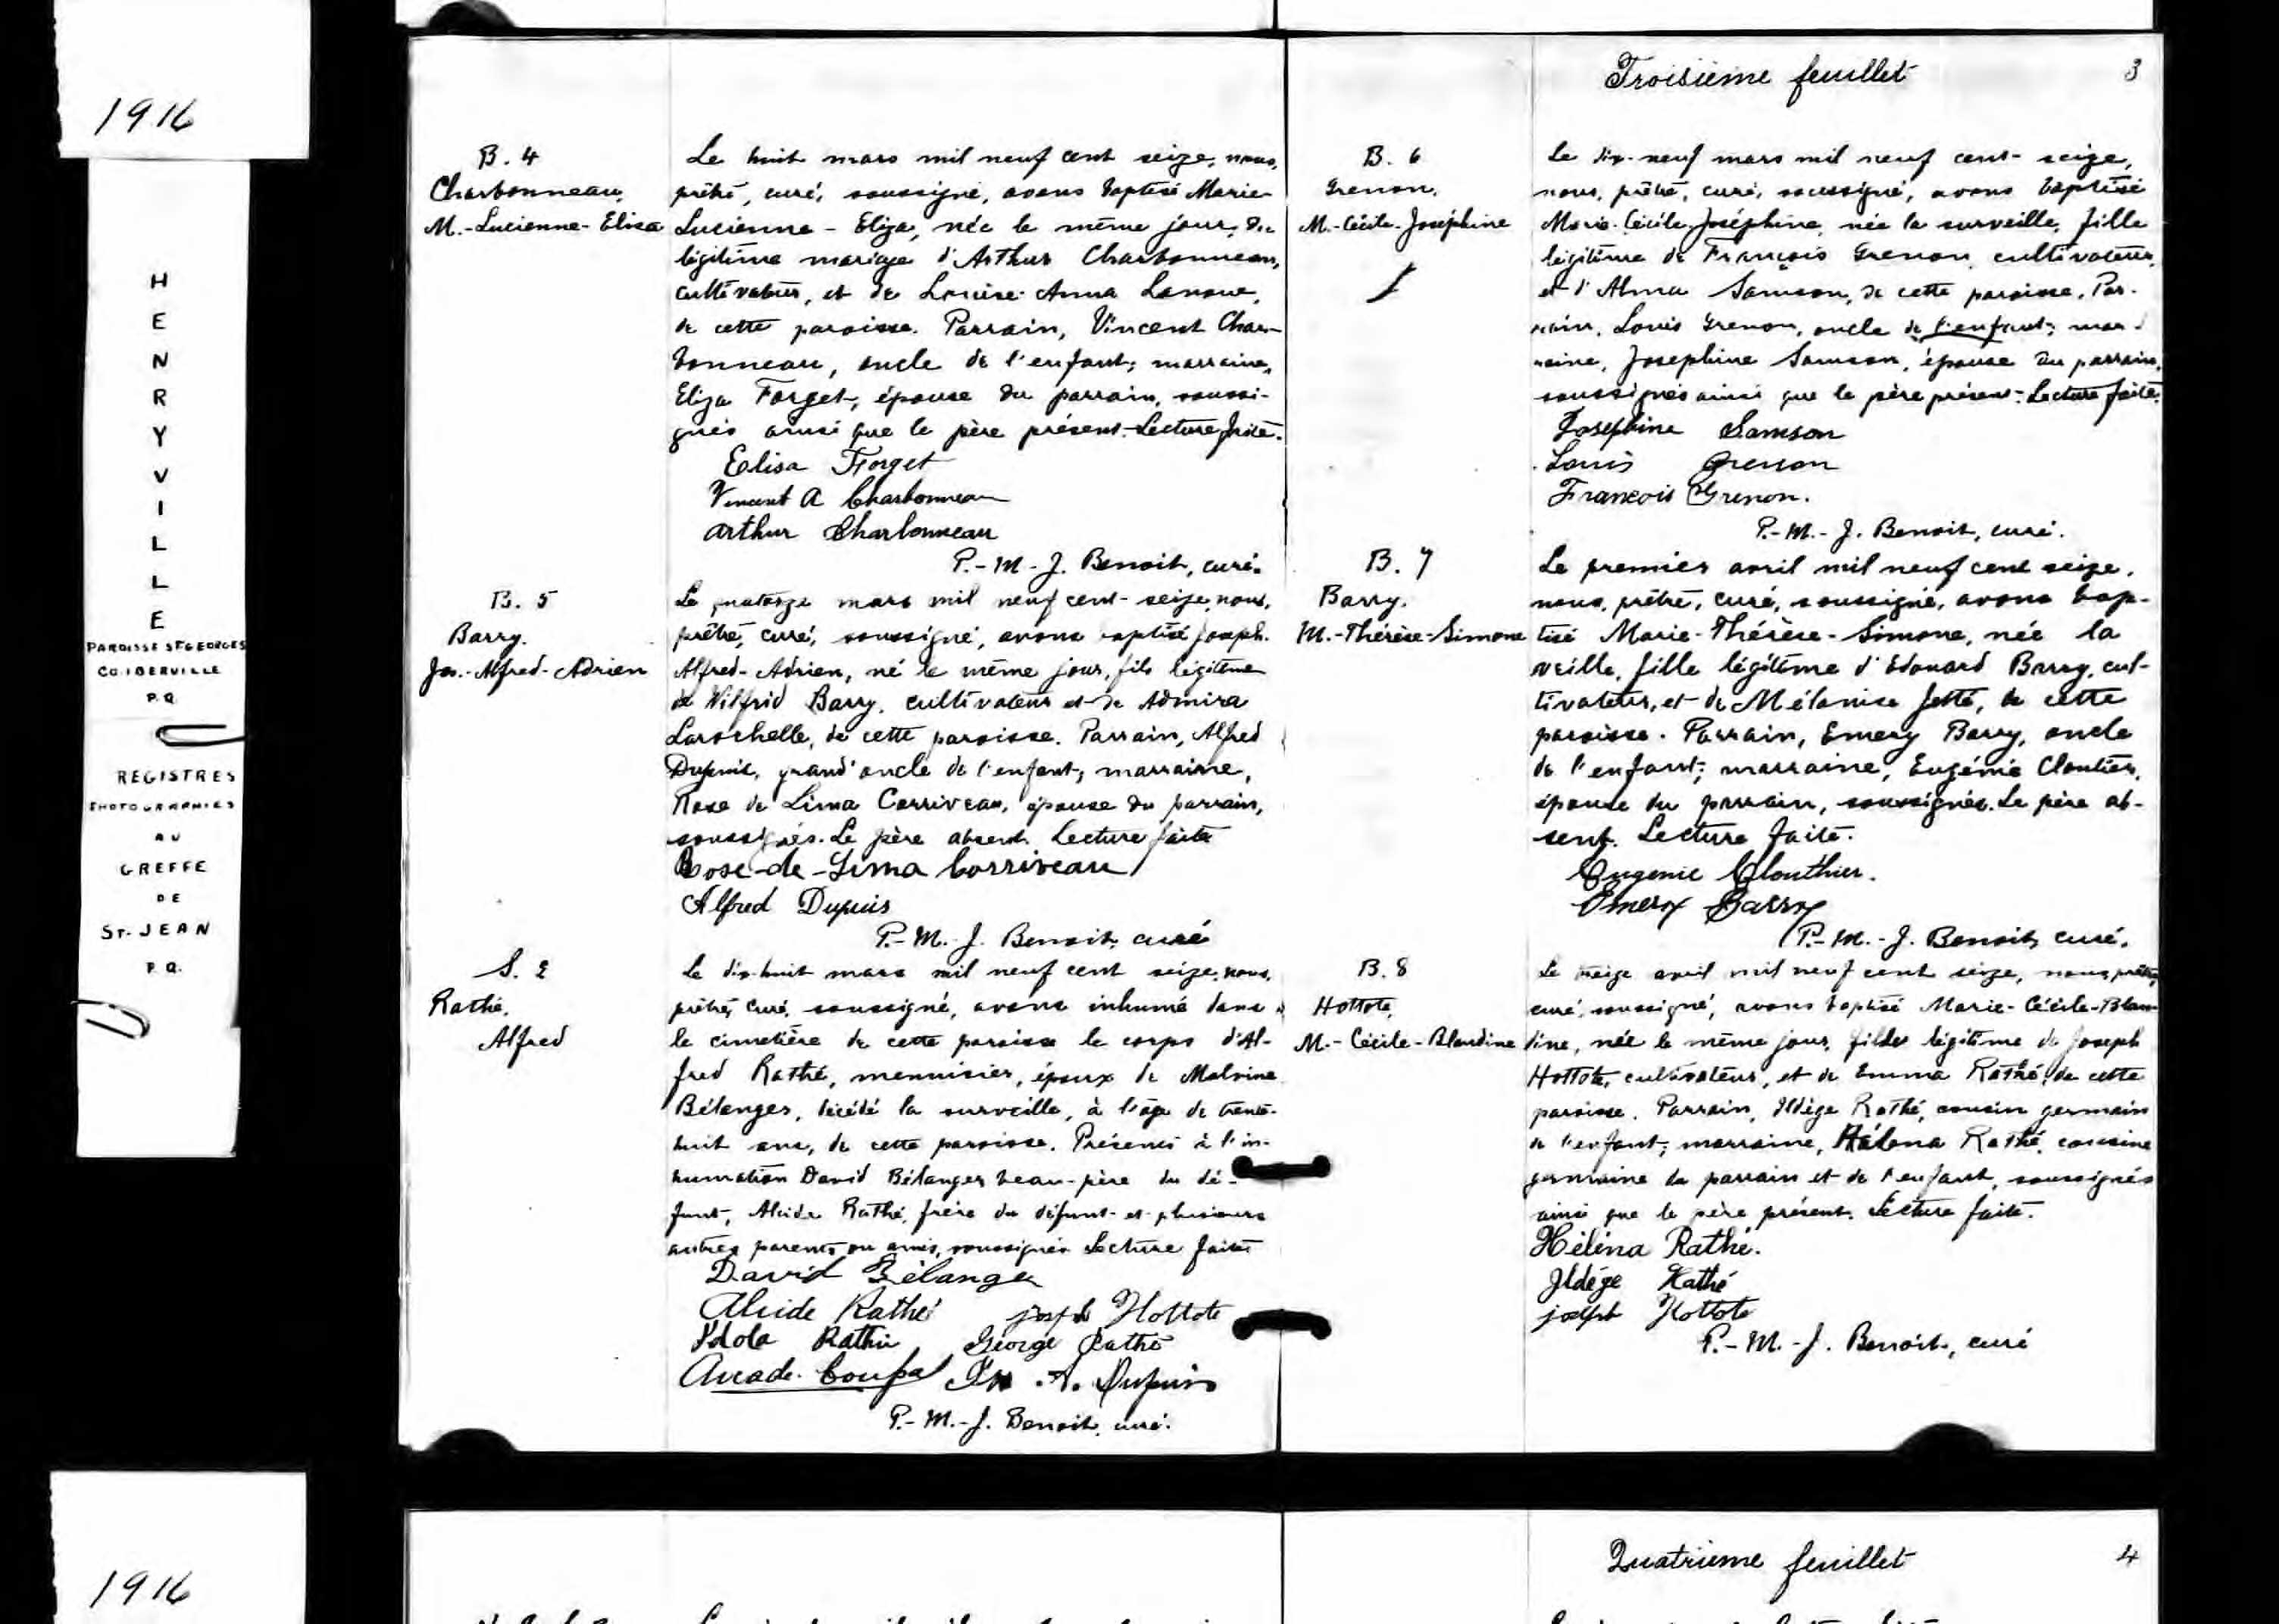 1916
HENRYVILLE
PAROISSE ST GEORGES
CO. IBERVILLE
P.Q.
REGISTRES
PHOTOGRAPHIES
AU
GREFFE
DE
ST-JEAN
P.Q.
B. 4
Charbonneau,
M.-Lucienne-Elisa
Le huit mars mil neuf cent seize, nous,
prêtre, curé, soussigné, avons baptisé Marie-
Lucienne-Eliza, née le même jour, du
légitime mariage d'Arthur Charbonneau,
cultivateur, et de Anna Lanoue,
de cette paroisse. Parrain, Vincent Char-
bonneau, oncle de l'enfant; marraine,
Eliza Forget, épouse du parrain, soussi-
gnés ainsi que le père présent. Lecture faite.
Elisa Forget
Vincent A Charbonneau
Arthur Charbonneau
P.-M.-J. Benoit, curé.
B. 5
Barry.
Jos.-Alfred-Adrien
Le quatorze mars mil neuf cent-seize, nous,
prêtre, curé, soussigné, avons baptisé Joseph-
Alfred-Adrien, né le même jour, fils légitime
de Wilfrid Barry, cultivateur et de Admira
Larochelle, de cette paroisse. Parrain, Alfred
Dupuis, grand'oncle de l'enfant; marraine,
Rose de Lima Corriveau, épouse du parrain,
soussignés. Le père absent. Lecture faite
Rose-de-Lima Corriveau
Alfred Dupuis
P.-M.-J. Benoit, curé
S. 2
Rathé.
Alfred
Le dix-huit mars mil neuf cent seize, nous,
prêtre, curé, soussigné, avons inhumé dans
le cimetière de cette paroisse le corps d'Al-
fred Rathé, menuisier, époux de Malvina
Bélanger, décédé la surveille, à l'âge de trente-
huit ans, de cette paroisse. Présents à l'in-
humation David Bélanger beau-père du dé-
funt, Alcide Rathé, frère du défunt et plusieurs
autres parents ou amis, soussignés. Lecture faite
David Bélanger
Alcide Rathé joseph Hottote
Rathé George Rathé
Arcade Coupal A. Dupuis
P.-M.-J. Benoit, curé.
Troisième feuillet 3
B. 6
Grenon.
M.-Cécile-Joséphine
Le dix-neuf mars mil neuf cent-seize,
nous, prêtre, curé, soussigné, avons baptisé
Marie-Cécile-Joséphine, née la surveille, fille
légitime de François Grenon, cultivateur,
et d'Alma Samson, de cette paroisse. Par-
rain, Louis Grenon, oncle de l'enfant; mar-
raine, Josephine Samson, épouse du parrain,
soussignés ainsi que le père présent. Lecture faite.
Josephine Samson
Louis Grenon
Francois Grenon.
P.-M.-J. Benoit, curé.
B. 7
Barry.
M.-Thérèse-Simone
Le premier avril mil neuf cent seize,
nous, prêtre, curé, soussigné, avons bap-
tisé Marie-Thérèse-Simone, née la
veille, fille légitime d'Edouard Barry, cul-
tivateur, et de Mélanise Jetté, de cette
paroisse. Parrain, Emery Barry, oncle
de l'enfant; marraine, Eugénie Cloutier,
épouse du parrain, soussignés. Le père ab-
sent. Lecture faite.
Eugenie Clouthier.
Emery Barry
P.-M.-J. Benoit, curé.
B. 8
Hottote,
M.-Cécile-Blandine
Le treize avril mil neuf cent seize, nous, prêtre,
curé, soussigné, avons baptisé Marie-Cécile-Blan-
dine, née le même jour, fille légitime de Joseph
Hottote, cultivateur, et de Emma Rathé, de cette
paroisse. Parrain, Ildège Rathé, cousin germain
de l'enfant; marraine, Héléna Rathé, cousine
germaine du parrain et de l'enfant, soussignés
ainsi que le père présent. Lecture faite.
Héléna Rathé.
Ildége Rathé
joseph Hottote
P.-M.-J. Benoit, curé
1916
Quatrième feuillet 4